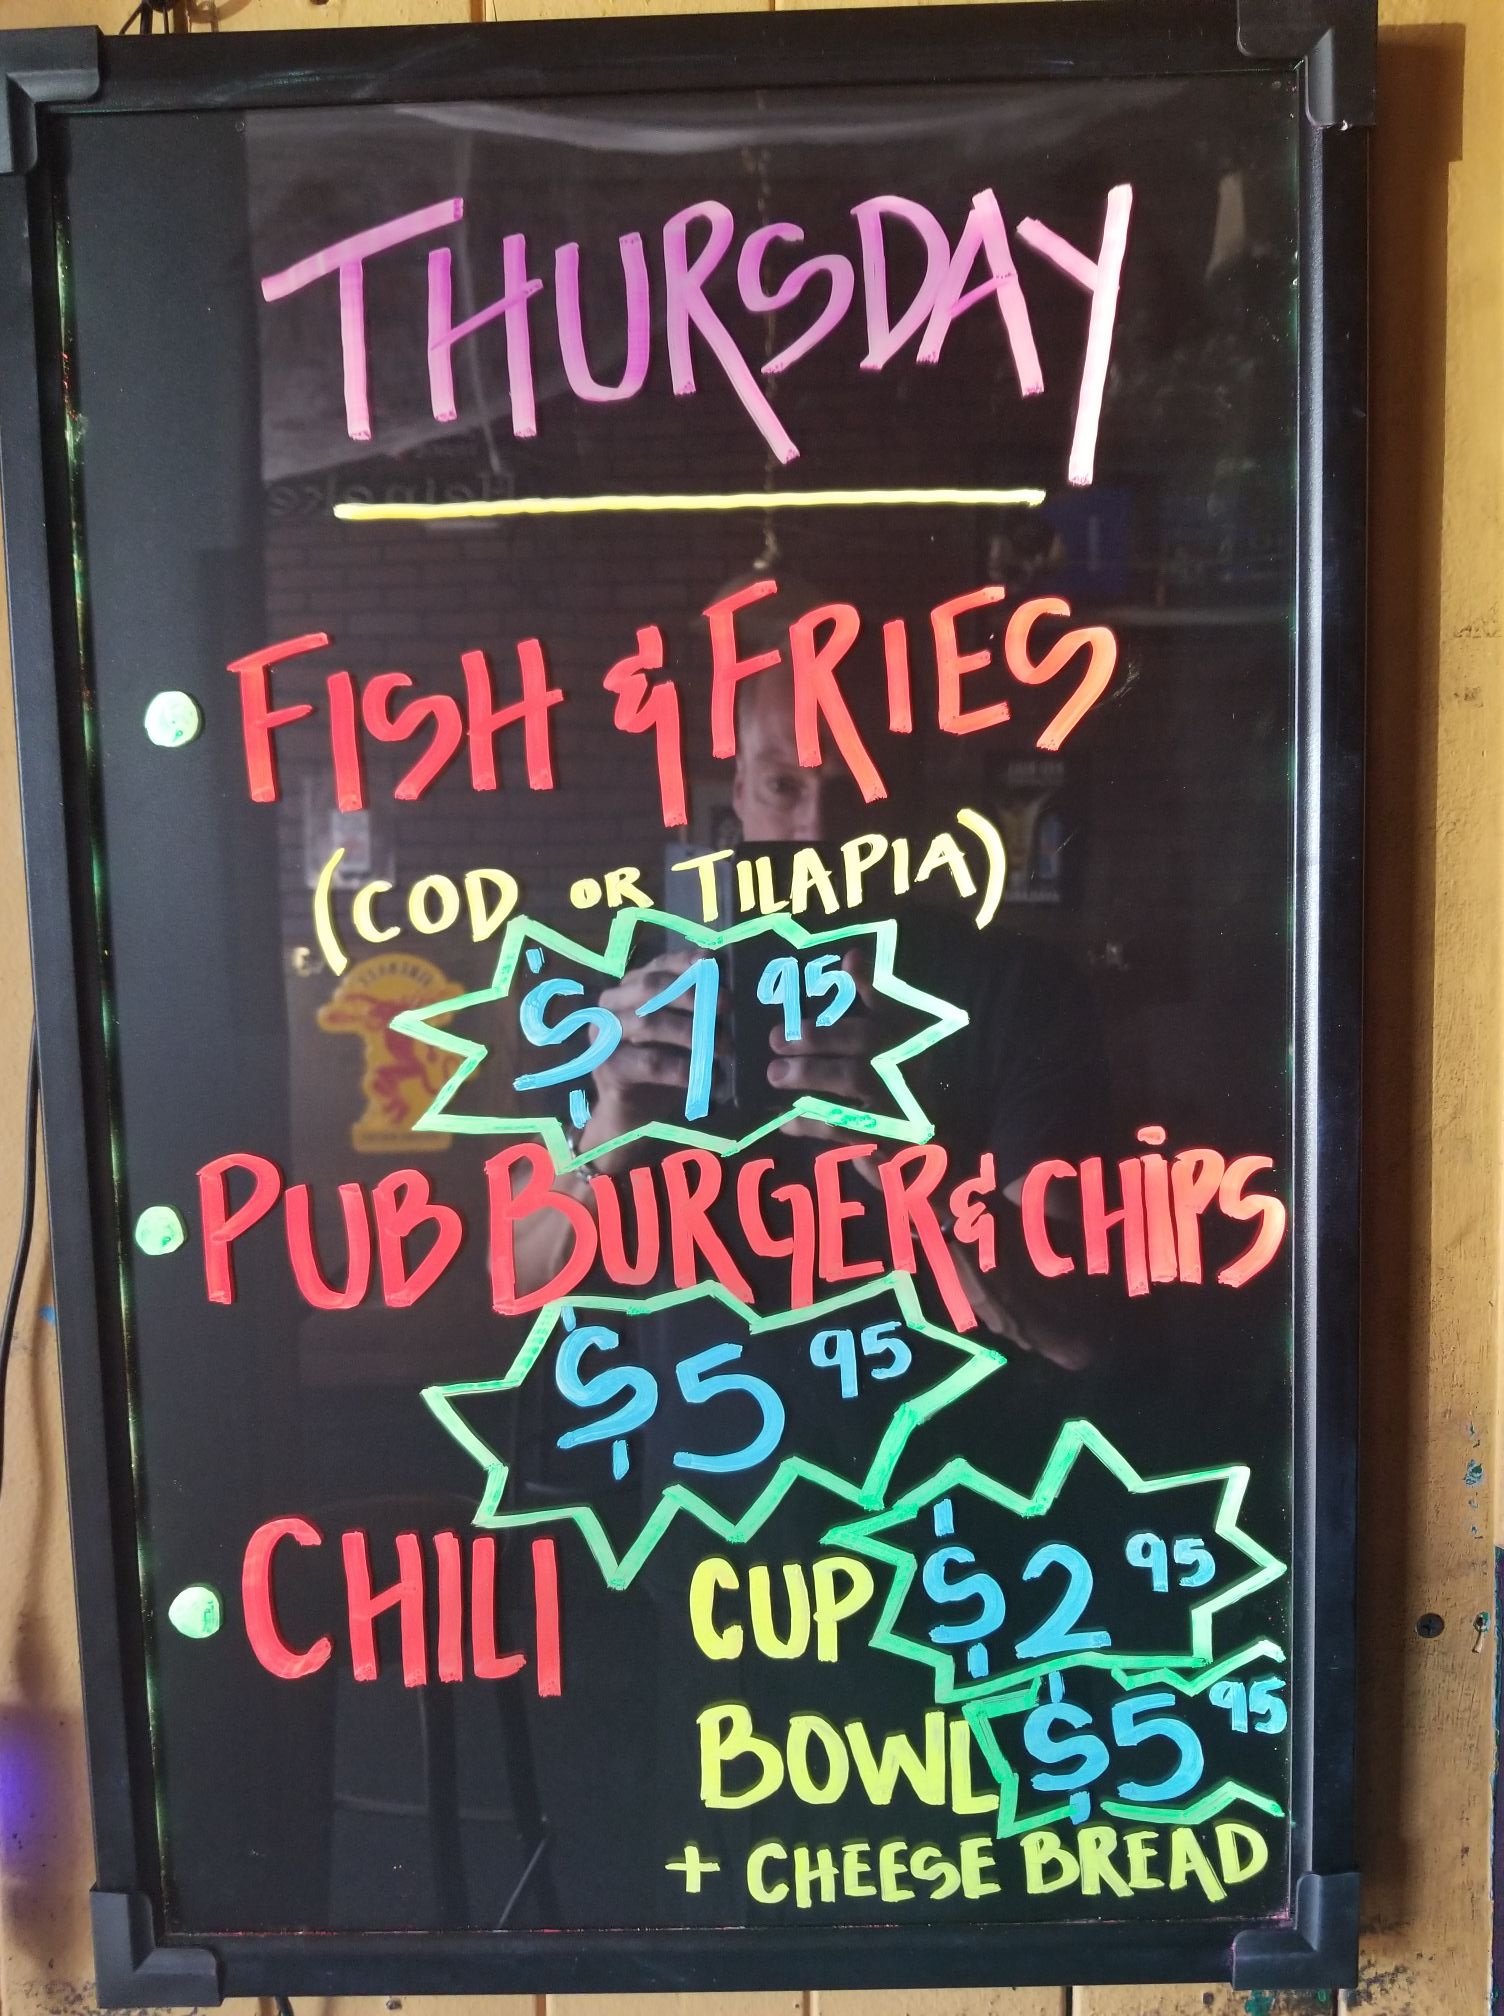 THURSDAY
FISH & FRIES
(COD OR TILAPIA)
$7 95
PUB BURGER & CHiPS
$5 95
CHILI CUP $2 95
BOWL $5 95
+ CHEESE BREAD